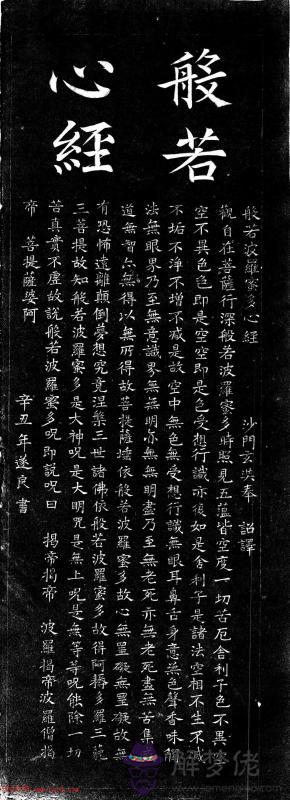 般若
心經
般若波羅蜜多心經 沙門玄奘奉 詔譯
觀自在菩薩行深般若波羅蜜多時照見五蘊皆空度一切苦厄舍利子色不異空
空不異色色即是空空即是色受想行識亦復如是舍利子是諸法空相不生不滅
不垢不淨不增不減是故空中無色無受想行識無眼耳鼻舌身意無色聲香味觸
法無眼界乃至無意識界無無明亦無無明盡乃至無老死亦無老死盡無苦集滅
道無智亦無得以無所得故菩提薩埵依般若波羅蜜多故心無罣礙無罣礙故無
有恐怖遠離顛倒夢想究竟涅槃三世諸佛依般若波羅蜜多故得阿耨多羅三藐
三菩提故知般若波羅蜜多是大神呪是大明呪是無上呪是無等等呪能除一切
苦真實不虛故說般若波羅蜜多呪即說呪曰 揭帝揭帝 波羅揭帝波羅僧揭
帝 菩提薩婆訶 辛丑年遂良書